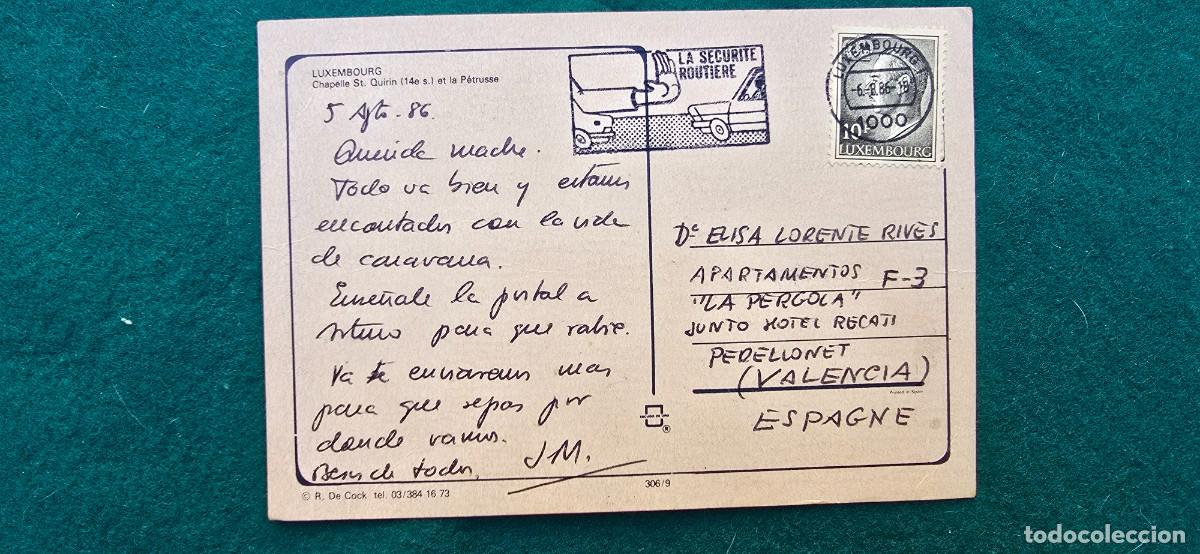 LUXEMBOURG
Chapelle St. Quirin (14e s.) et la Pétrusse
5 Agto-86.
Querida madre.
Todo va bien y estamos
encantados con la vida
de caravana.
Enseñale la postal a
Arturo para que rabie.
Ya te enviaremos mas
para que sepas por
donde vamos.
Besos de todos. JM.
© R. De Cock tel. 03/384 16 73
306/9
LA SECURITE
ROUTIERE
LUXEMBOURG
-6.-8.86-18
1000
10F
LUXEMBOURG
Dª ELISA LORENTE RIVES
APARTAMENTOS F-3
"LA PERGOLA"
JUNTO HOTEL RECATI
PERELLONET
(VALENCIA)
Printed in Spain
ESPAGNE
®
todocoleccion